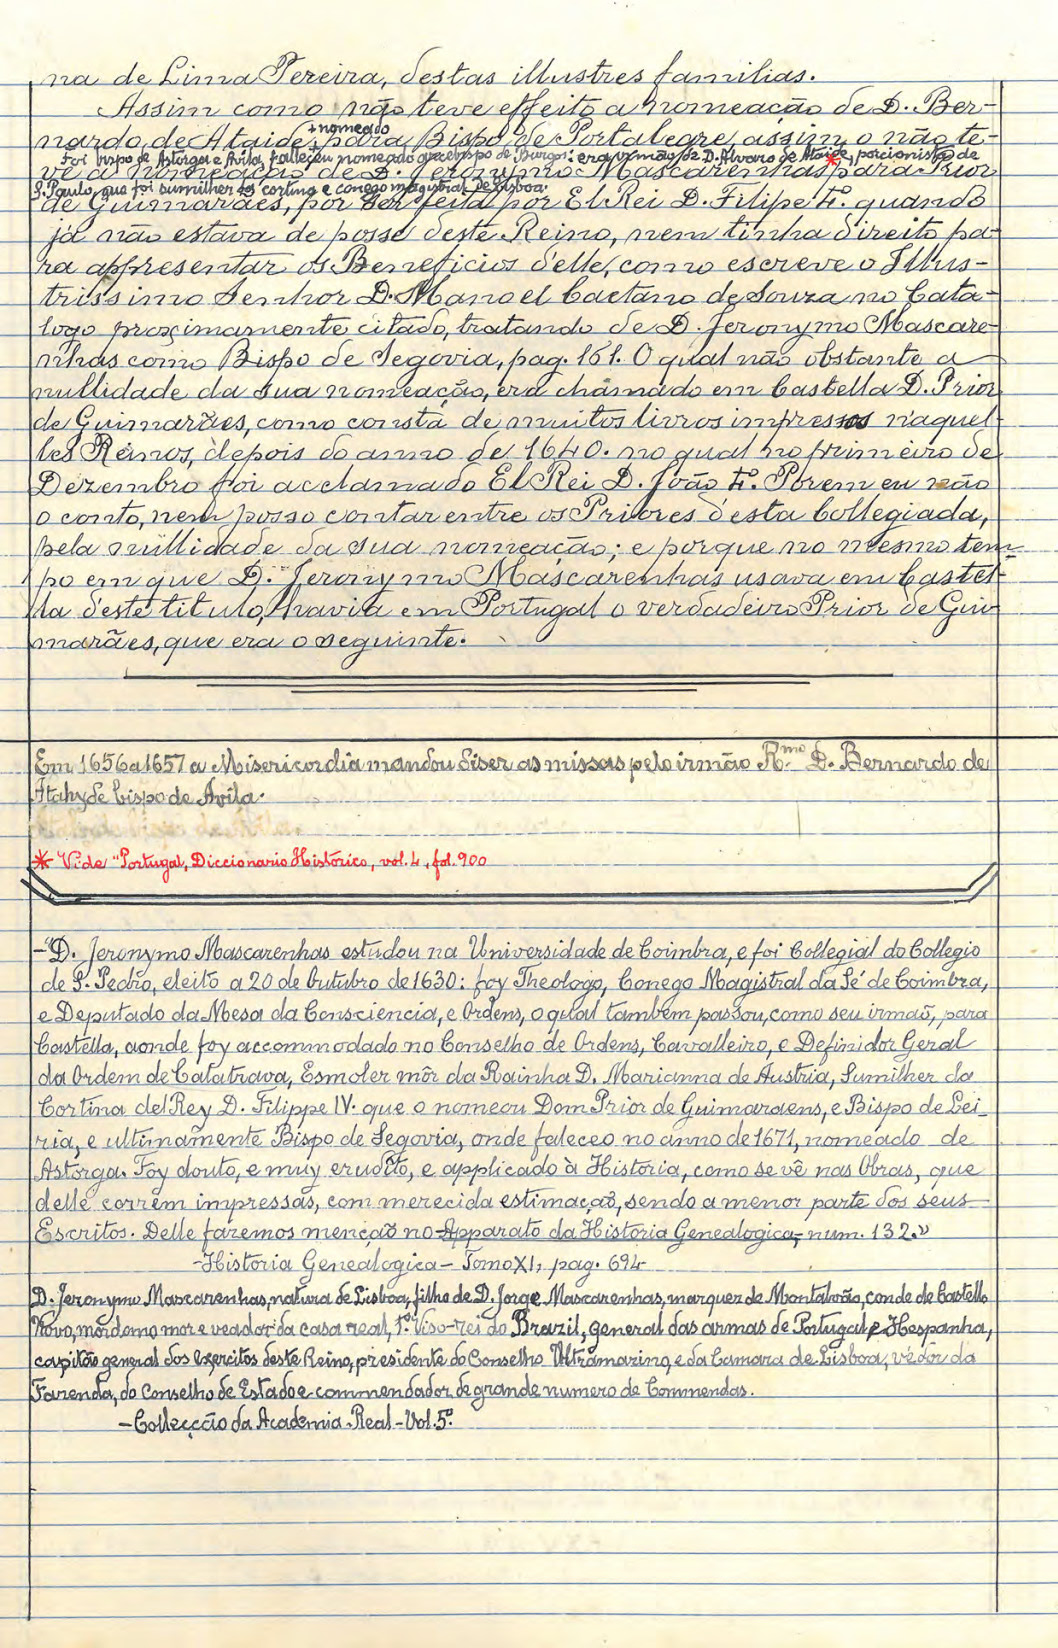 na de Lima Pereira, destas illustres familias.
Assim como não teve effeito a nomeação de D. Ber-
nardo de Ataide, + nomeado para Bispo de Portalegre assim o não te-
Foi bispo de Astorga e Avila, falleceu nomeado arcebispo de Burgos: era irmão de D. Alvaro de Ataide, * porcionista de
ve a nomeação de D. Jeronymo Mascarenhas para Prior
S. Paulo, que foi sumilher da cortina e conego magistral de Lisboa.
de Guimarães, por ser feita por El Rei D. Filipe 4º. quando
já não estava de posse deste Reino, nem tinha direito pa-
ra appresentar os Beneficios d'elle, como escreve o Illus-
trissimo Senhor D. Manoel Caetano de Souza no Cata-
logo proximamente citado, tratando de D. Jeronymo Mascare-
nhas como Bispo de Segovia, pag. 161. O qual não obstante a
nullidade da sua nomeação, era chamado em Castella D. Prior
de Guimarães, como consta de muitos livros impressos n'aquel-
les Reinos, depois do anno de 1640. no qual no primeiro de
Dezembro foi acclamado El Rei D. João 4º. Porem eu não
o conto, nem posso contar entre os Priores d'esta Collegiada,
pela nullidade da sua nomeação; e porque no mesmo tem-
po em que D. Jeronymo Mascarenhas usava em Castel-
la d'este titulo, havia em Portugal o verdadeiro Prior de Gui-
marães, que era o seguinte.
Em 1656 a 1657 a Misericordia mandou diser as missas pelo irmão R.mo D. Bernardo de
Atahyde bispo de Avila.
* Vide "Portugal, Diccionario Historico, vol. 4, fol. 900
-"D. Jeronymo Mascarenhas estudou na Universidade de Coimbra, e foi Collegial do Collegio
de S. Pedro, eleito a 20 de Outubro de 1630: foy Theologo, Conego Magistral da Sé de Coimbra,
e Deputado da Mesa da Consciencia, e Ordens, o qual tambem passou, como seu irmaõ, para
Castella, aonde foy accommodado no Conselho de Ordens, Cavalleiro, e Definidor Geral
da Ordem de Calatrava, Esmoler mór da Rainha D. Marianna de Austria, Sumilher da
Cortina del Rey D. Filippe IV. que o nomeou Dom Prior de Guimaraens, e Bispo de Lei-
ria, e ultimamente Bispo de Segovia, onde faleceo no anno de 1671, nomeado de
Astorga. Foy douto, e muy erudito, e applicado à Historia, como se vê nas Obras, que
delle correm impressas, com merecida estimaçaõ, sendo a menor parte dos seus
Escritos. Delle fazemos mençaõ no Apparato da Historia Genealogica, num. 132."
-Historia Genealogica- Tomo XI, pag. 694
D. Jeronymo Mascarenhas, natural de Lisboa, filho de D. Jorge Mascarenhas, marquez de Montalvão, conde de Castello
Novo, mordomo mor e veador da casa real, 1º. Viso-rei do Brazil, general das armas de Portugal e Hespanha,
capitão general dos exercitos deste Reino, presidente do Conselho Ultramarino, e da Camara de Lisboa, vedor da
Fazenda, do Conselho de Estado e commendador de grande numero de Commendas.
-Collecção da Academia Real-Vol. 5º.